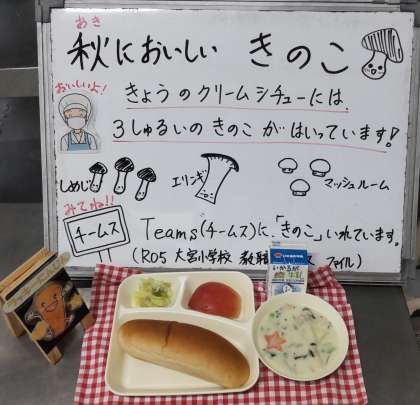 あき
秋においしい きのこ
おいしいよ!
きょうのクリームシチューには、
3しゅるいの きのこ がはいっています!
しめじ
エリンギ
マッシュルーム
みてね!!
チームス
Teams(チームス)に、「きのこ」いれています。
(R05 大宮小学校 ファイル)
いかるが
牛乳